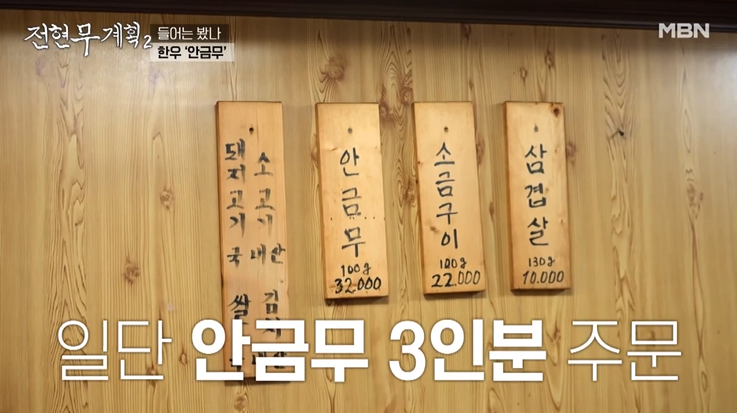 전현무계획2
들어는 봤나
한우 '안금무'
MBN
소고기 국내산
돼지고기 국내산
안금무
100g
32.000
소금구이
100g
22.000
삼겹살
130g
10.000
일단 안금무 3인분 주문